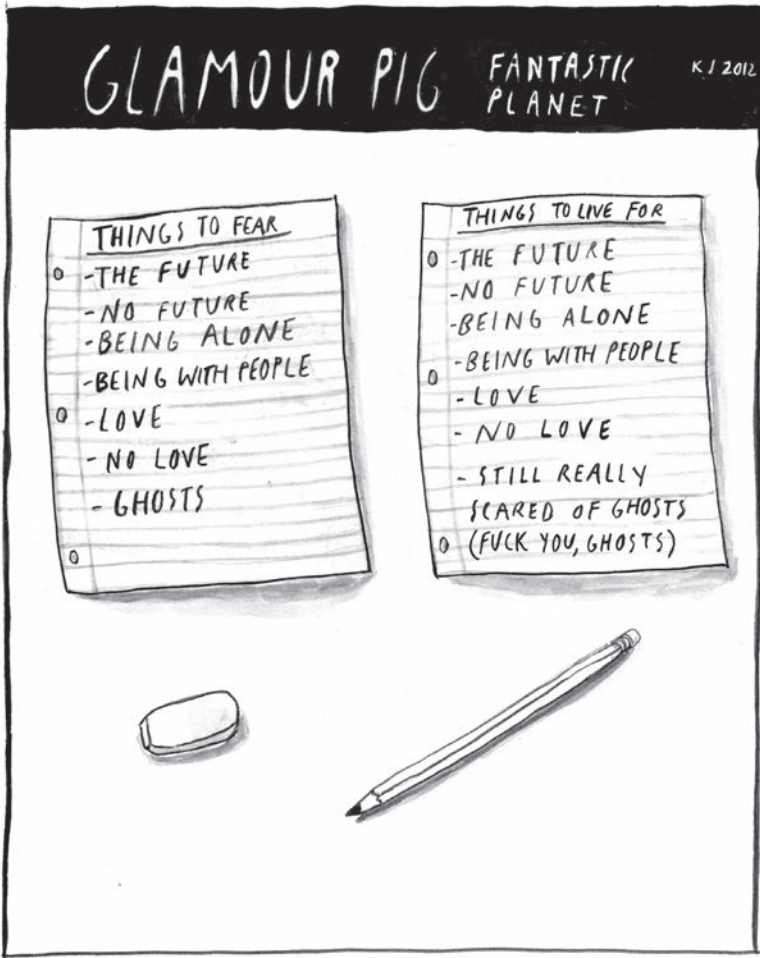 GLAMOUR PIG
FANTASTIC
PLANET
KJ 2012
THINGS TO FEAR
-THE FUTURE
-NO FUTURE
-BEING ALONE
-BEING WITH PEOPLE
-LOVE
-NO LOVE
-GHOSTS
THINGS TO LIVE FOR
-THE FUTURE
-NO FUTURE
-BEING ALONE
-BEING WITH PEOPLE
-LOVE
-NO LOVE
-STILL REALLY
SCARED OF GHOSTS
(FUCK YOU, GHOSTS)